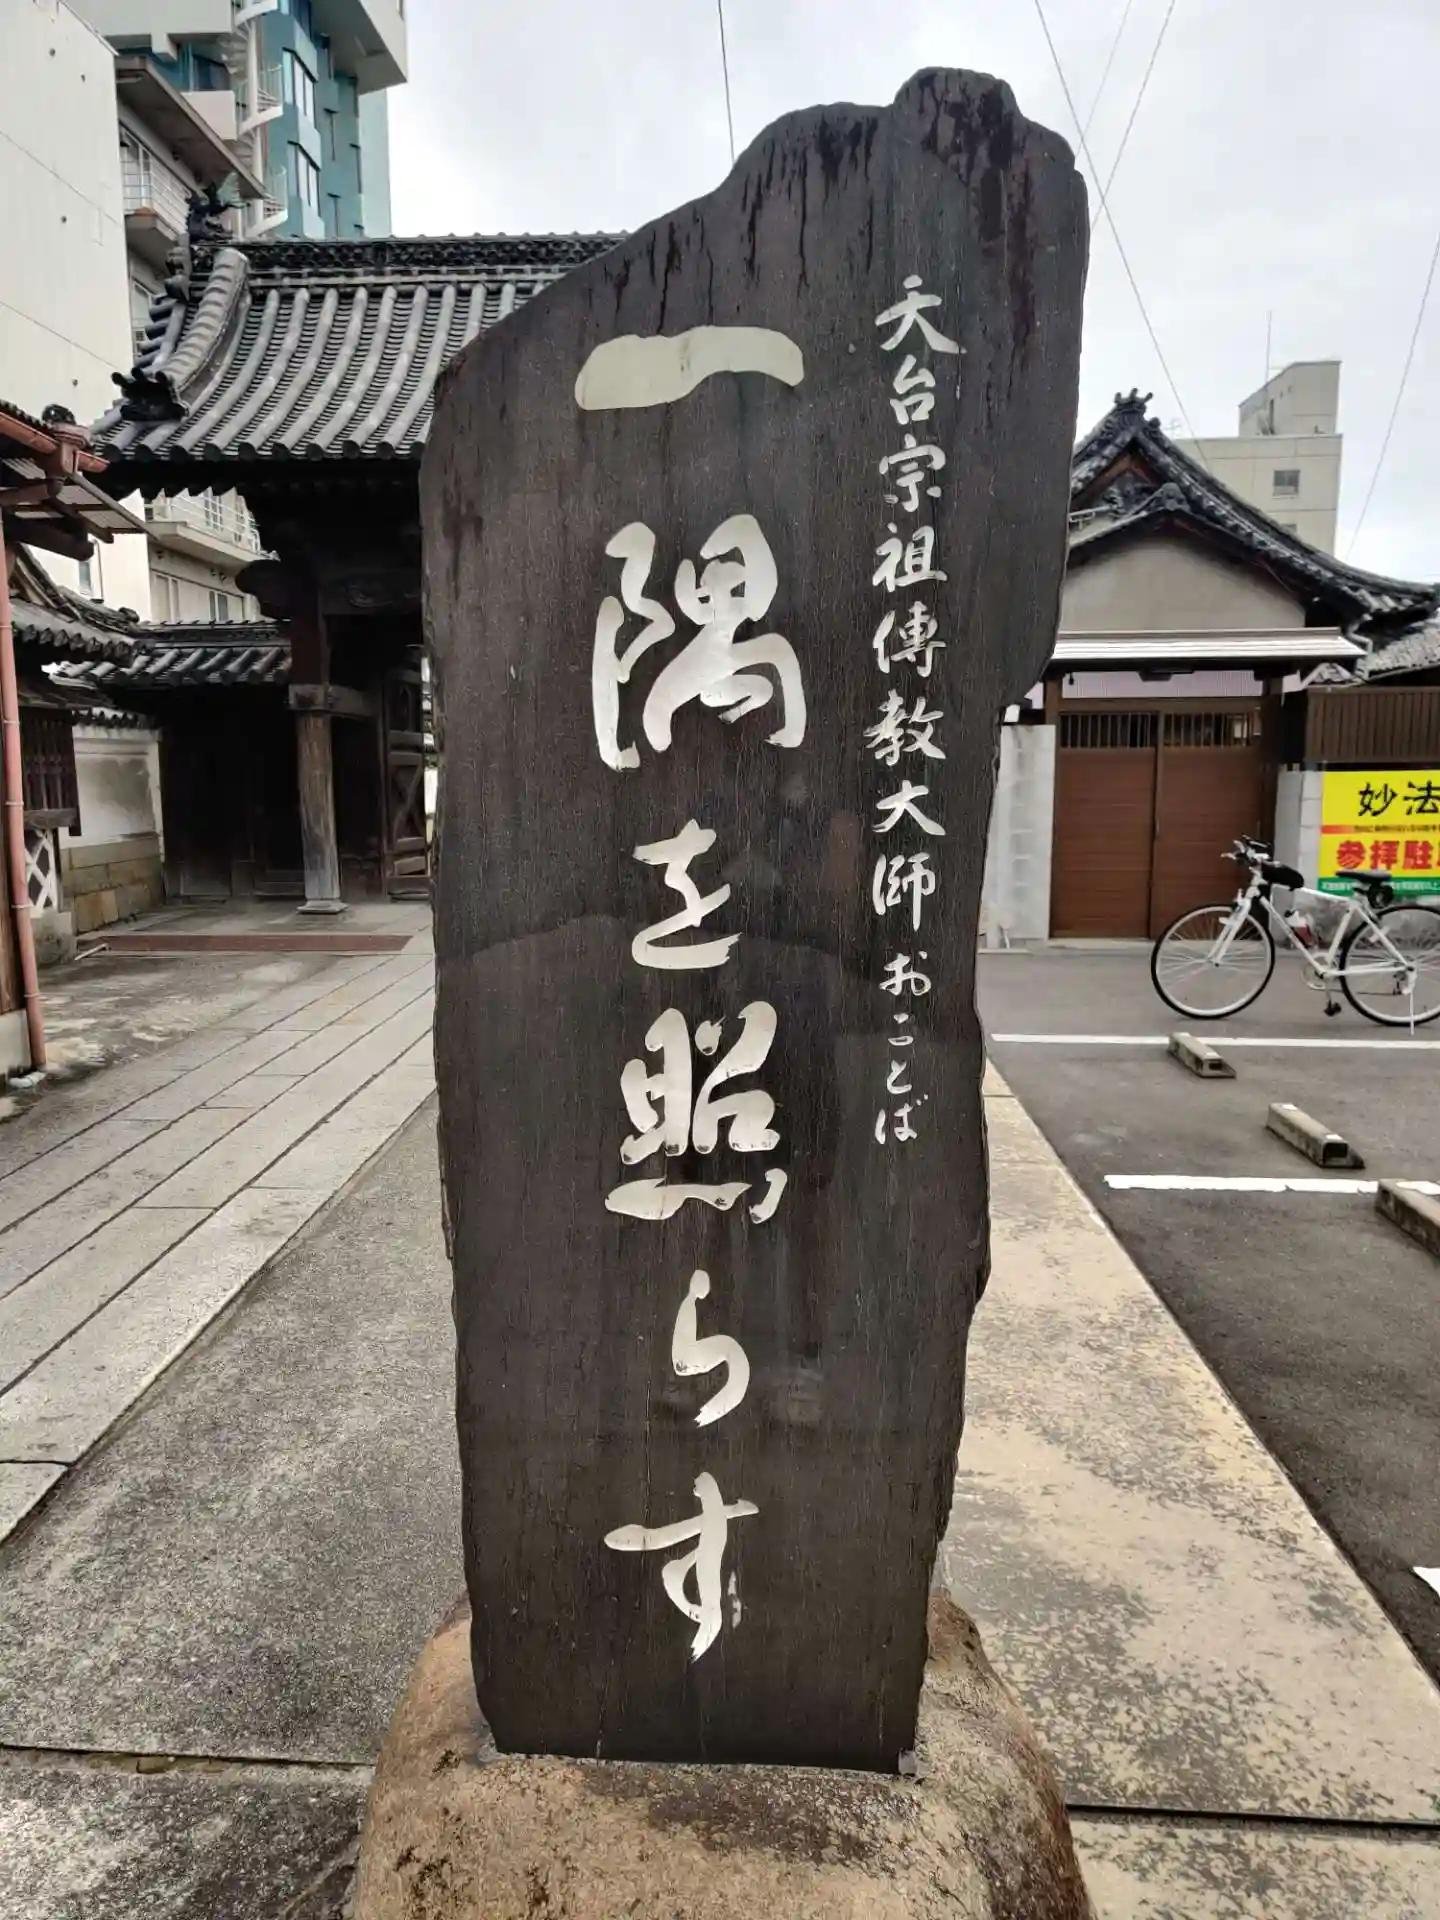 天台宗祖傳教大師おことば
一隅を照らす
妙法
参拝駐